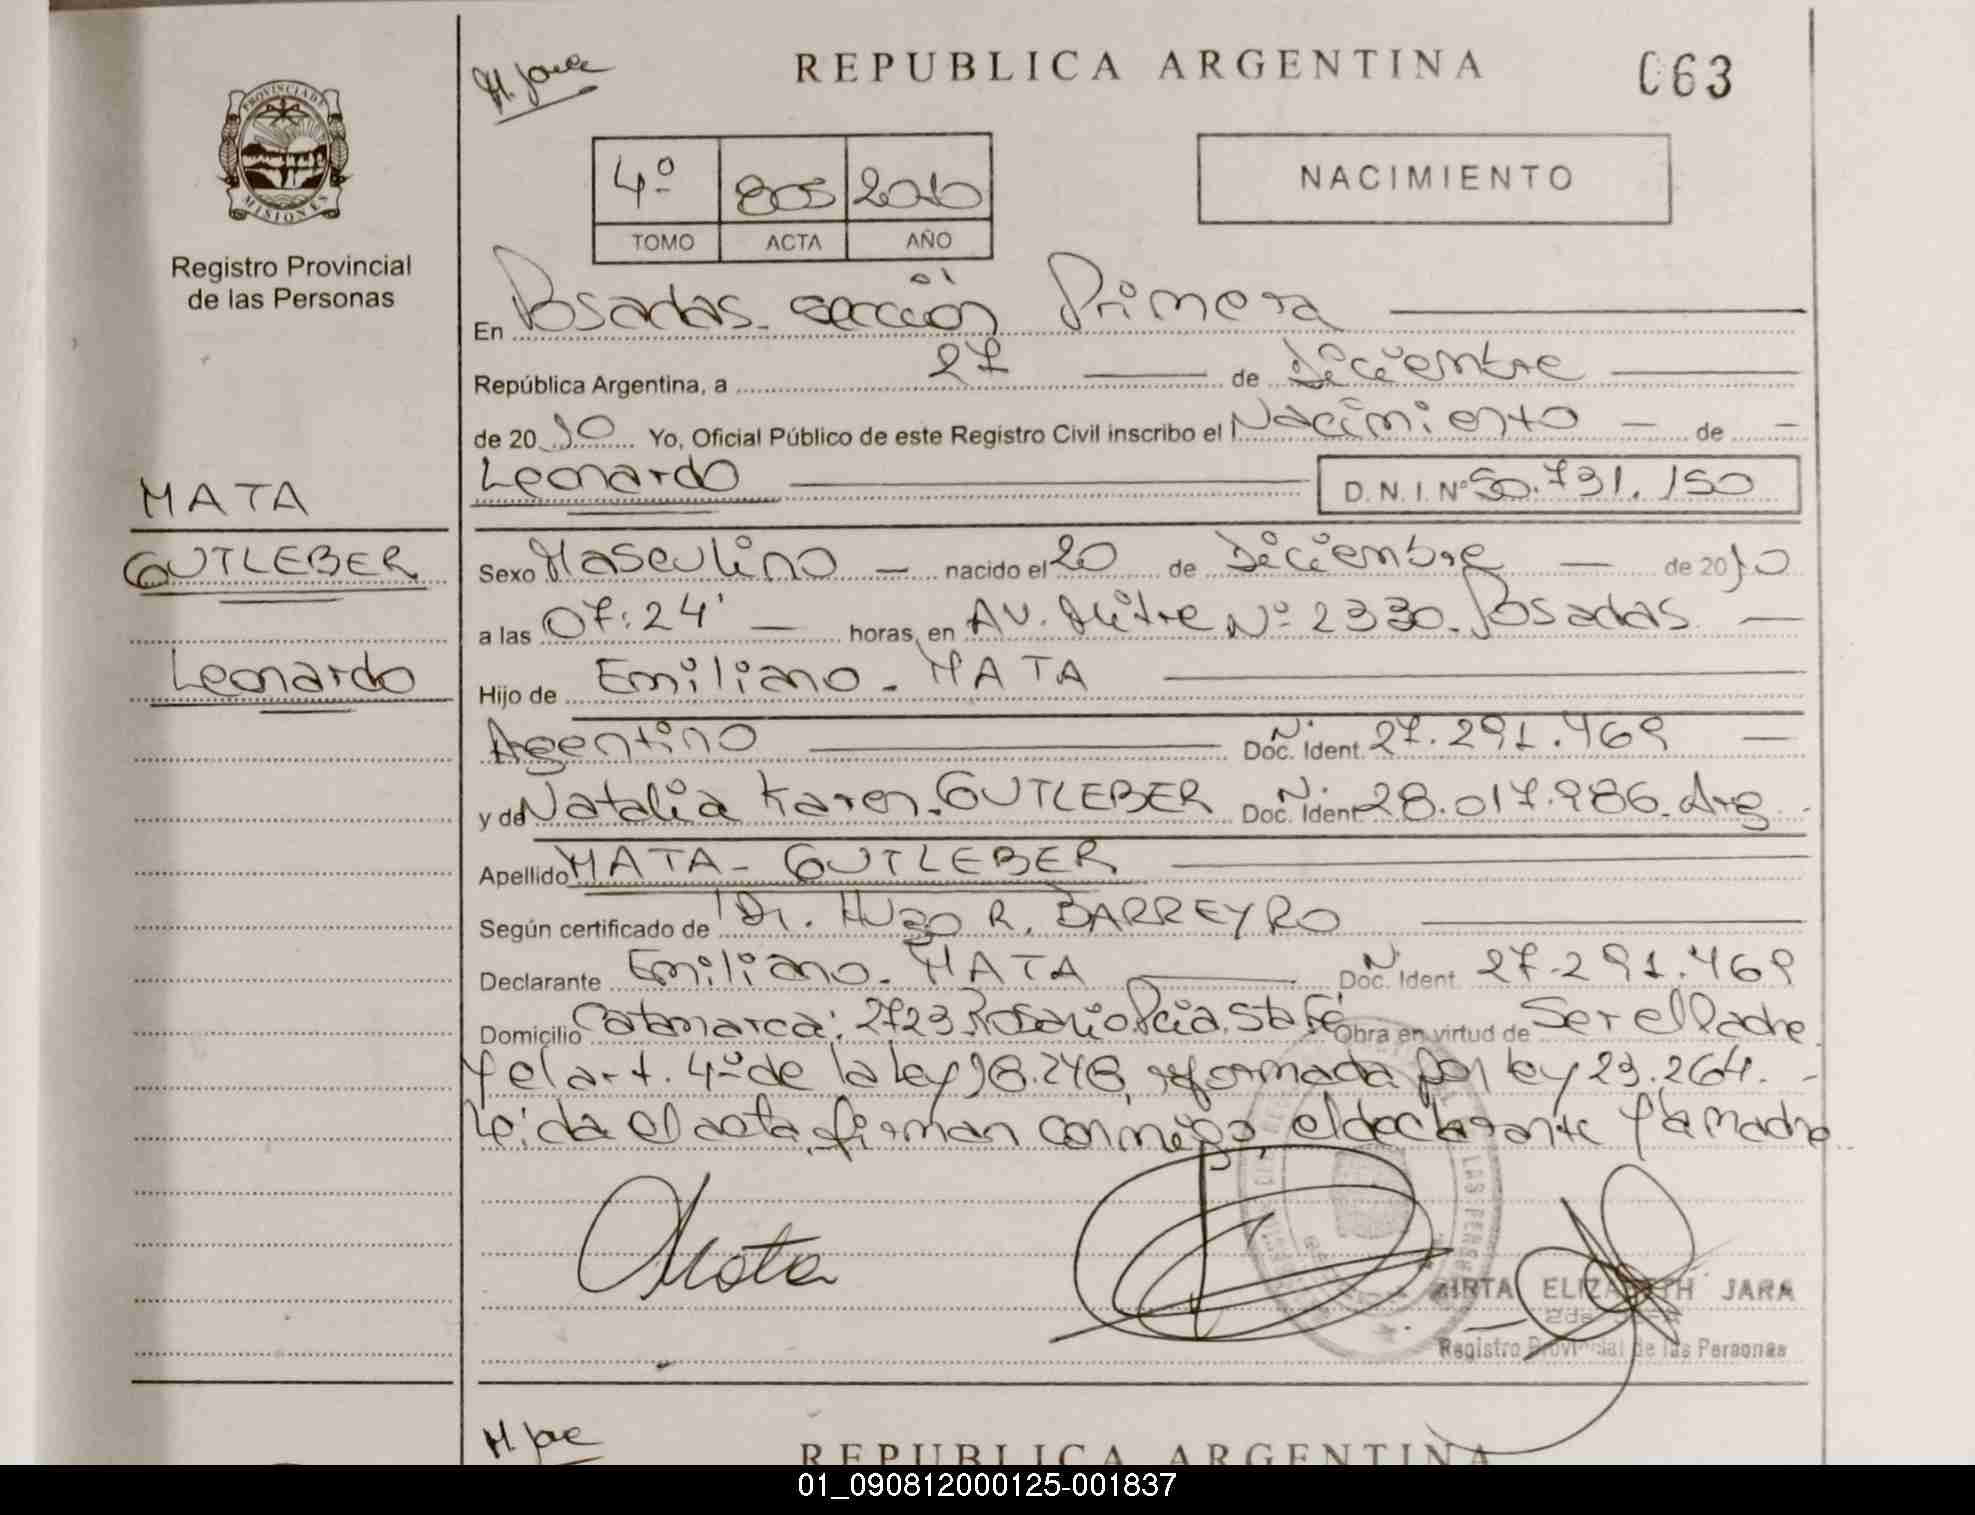 M. Jara
REPUBLICA ARGENTINA
063
PROVINCIA DE
MISIONES
Registro Provincial
de las Personas
4º 805 2010
TOMO ACTA AÑO
NACIMIENTO
En Posadas. sección Primera
República Argentina, a 27 de Diciembre
de 2010 Yo, Oficial Público de este Registro Civil inscribo el Nacimiento — de —
Leonardo D.N.I. Nº 50.731.150
MATA
GUTLEBER
Leonardo
Sexo Masculino — nacido el 20 de Diciembre — de 2010
a las 07:24' — horas, en AV. Mitre Nº 2330. Posadas —
Hijo de Emiliano - MATA
Argentino Doc. Ident. N. 27.291.469 —
y de Natalia Karen. GUTLEBER Doc. Ident N. 28.017.986. Arg.
Apellido MATA - GUTLEBER
Según certificado de Dr. HUgO R. BARREYRO
Declarante Emiliano. MATA Doc. Ident. N. 27.291.469
Domicilio Catamarca: 2723 Rosario Pcia. Sta Fé Obra en virtud de Ser el Padre
y el art. 4º de la Ley 18.248, reformada por ley 23.264. -
Leida el acta, firman conmigo, el declarante y la madre
Mata
LAS PERSO
MIRTA ELIZABETH JARA
Registro Provincial de las Personas
M. Jara
REPUBLICA ARGENTINA
01_090812000125-001837